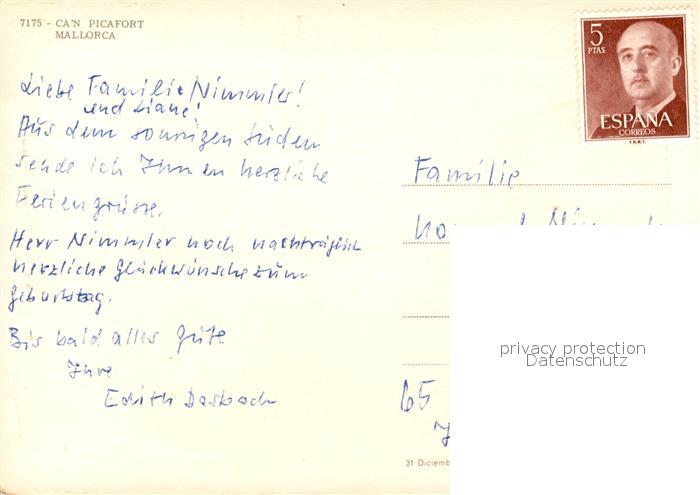 7175 - CA'N PICAFORT
MALLORCA
5
PTAS
ESPAÑA
CORREOS
F.N.M.T.
Liebe Familie Nimmler!
und Liane!
Aus dem sonnigen Süden
sende ich Ihnen herzliche
Feriengrüsse.
Herr Nimmler noch nachträglich
herzliche Glückwünsche zum
Geburtstag.
Bis bald alles Gute
Ihre
Edith
Familie
privacy protection
Datenschutz
65
31 Diciemb